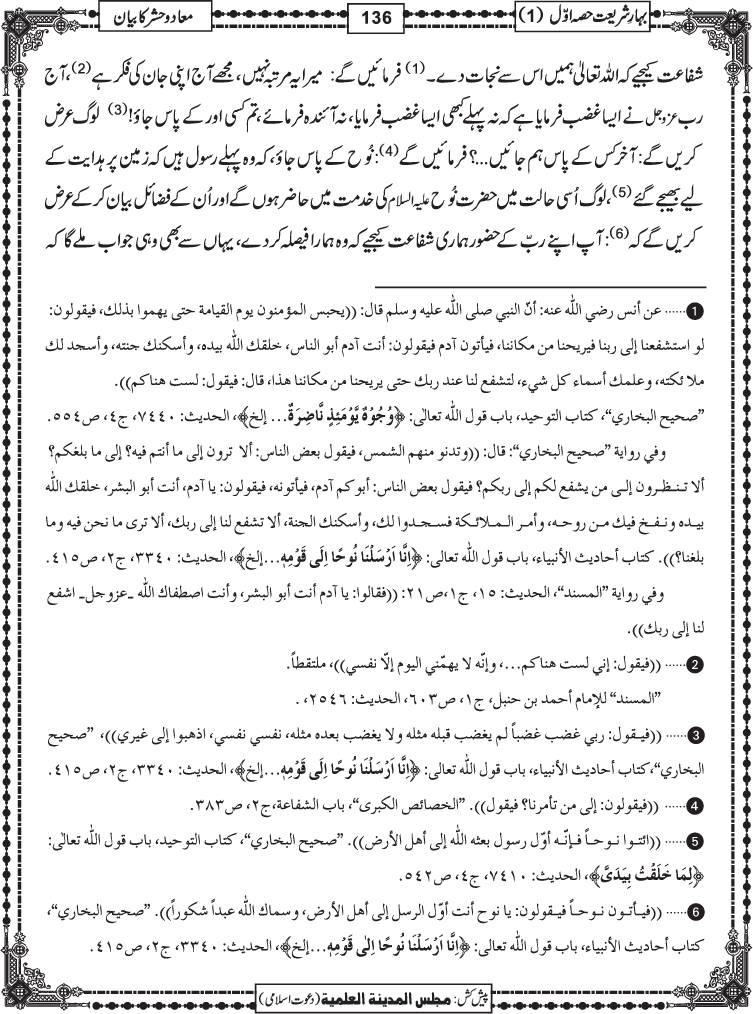 بہار شریعت حصہ اوّل (1)
136
معاد و حشر کا بیان
شفاعت کیجیے کہ اللہ تعالیٰ ہمیں اس سے نجات دے۔(1) فرمائیں گے: میرا یہ مرتبہ نہیں، مجھے آج اپنی جان کی فکر ہے(2)، آج
رب عزوجل نے ایسا غضب فرمایا ہے کہ نہ پہلے کبھی ایسا غضب فرمایا، نہ آئندہ فرمائے، تم کسی اور کے پاس جاؤ!(3) لوگ عرض
کریں گے: آخر کس کے پاس ہم جائیں...؟ فرمائیں گے(4): نُوح کے پاس جاؤ، کہ وہ پہلے رسول ہیں کہ زمین پر ہدایت کے
لیے بھیجے گئے(5)، لوگ اُسی حالت میں حضرت نُوح علیہ السلام کی خدمت میں حاضر ہوں گے اور اُن کے فضائل بیان کر کے عرض
کریں گے کہ(6): آپ اپنے ربّ کے حضور ہماری شفاعت کیجیے کہ وہ ہمارا فیصلہ کر دے، یہاں سے بھی وہی جواب ملے گا کہ
1 ...... عن أنس رضي الله عنه: أنّ النبي صلى الله عليه وسلم قال: ((يحبس المؤمنون يوم القيامة حتى يهموا بذلك، فيقولون:
لو استشفعنا إلى ربنا فيريحنا من مكاننا، فيأتون آدم فيقولون: أنت آدم أبو الناس، خلقك الله بيده، وأسكنك جنته، وأسجد لك
ملائكته، وعلمك أسماء كل شيء، لتشفع لنا عند ربك حتى يريحنا من مكاننا هذا، قال: فيقول: لست هناكم)).
”صحيح البخاري“، كتاب التوحيد، باب قول الله تعالىٰ: ﴿وُجُوْهٌ يَّوْمَئِذٍ نَّاضِرَةٌ... إلخ﴾، الحديث: ٧٤٤٠، ج٤، ص٥٥٤.
وفي رواية ”صحيح البخاري“: قال: ((وتدنو منهم الشمس، فيقول بعض الناس: ألا ترون إلى ما أنتم فيه؟ إلى ما بلغكم؟
ألا تنظرون إلى من يشفع لكم إلى ربكم؟ فيقول بعض الناس: أبوكم آدم، فيأتونه، فيقولون: يا آدم، أنت أبو البشر، خلقك الله
بيده ونفخ فيك من روحه، وأمر الملائكة فسجدوا لك، وأسكنك الجنة، ألا تشفع لنا إلى ربك، ألا ترى ما نحن فيه وما
بلغنا؟)). كتاب أحاديث الأنبياء، باب قول الله تعالى: ﴿اِنَّا اَرْسَلْنَا نُوحًا اِلٰى قَوْمِهٖ...إلخ﴾، الحديث: ٣٣٤٠، ج٢، ص٤١٥.
وفي رواية ”المسند“، الحديث: ١٥، ج١،ص٢١: ((فقالوا: يا آدم أنت أبو البشر، وأنت اصطفاك الله ـ عزوجل ـ اشفع
لنا إلى ربك)).
2 ...... ((فيقول: إني لست هناكم...، وإنّه لا يهمّني اليوم إلّا نفسي))، ملتقطاً.
”المسند“ للإمام أحمد بن حنبل، ج١، ص٦٠٣، الحديث: ٢٥٤٦، .
3 ...... ((فيقول: ربي غضب غضباً لم يغضب قبله مثله ولا يغضب بعده مثله، نفسي نفسي، اذهبوا إلى غيري))، ”صحيح
البخاري“، كتاب أحاديث الأنبياء، باب قول الله تعالى: ﴿اِنَّا اَرْسَلْنَا نُوحًا اِلٰى قَوْمِهٖ...إلخ﴾، الحديث: ٣٣٤٠، ج٢، ص٤١٥.
4 ...... ((فيقولون: إلى من تأمرنا؟ فيقول)). ”الخصائص الكبرى“، باب الشفاعة،ج٢، ص٣٨٣.
5 ...... ((ائتوا نوحاً فإنّه أوّل رسول بعثه الله إلى أهل الأرض)). ”صحيح البخاري“، كتاب التوحيد، باب قول الله تعالىٰ:
﴿لِمَا خَلَقْتُ بِيَدَىَّ﴾، الحديث: ٧٤١٠، ج٤، ص٥٤٢.
6 ...... ((فيأتون نوحاً فيقولون: يا نوح أنت أوّل الرسل إلى أهل الأرض، وسماك الله عبداً شكوراً)). ”صحيح البخاري“،
كتاب أحاديث الأنبياء، باب قول الله تعالى: ﴿اِنَّا اَرْسَلْنَا نُوحًا اِلٰى قَوْمِهٖ...إلخ﴾، الحديث: ٣٣٤٠، ج٢، ص٤١٥.
پیش کش: مجلس المدینة العلمیة (دعوت اسلامی)